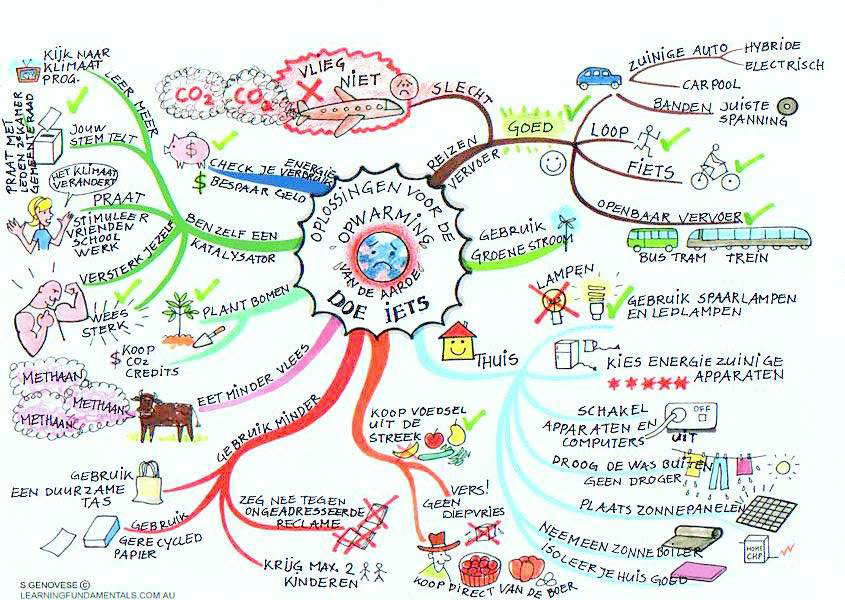 OPLOSSINGEN VOOR DE
OPWARMING
VAN DE AARDE
DOE IETS
REIZEN
VERVOER
SLECHT
VLIEG
NIET
CO2
CO2
GOED
ZUINIGE AUTO
HYBRIDE
ELECTRISCH
CARPOOL
BANDEN JUISTE
SPANNING
LOOP
FIETS
OPENBAAR VERVOER
BUS TRAM TREIN
GEBRUIK
GROENE STROOM
THUIS
LAMPEN
GEBRUIK SPAARLAMPEN
EN LEDLAMPEN
KIES ENERGIE ZUINIGE
APPARATEN
SCHAKEL
APPARATEN EN
COMPUTERS
OFF
UIT
DROOG DE WAS BUITEN
GEEN DROGER
PLAATS ZONNEPANELEN
NEEM EEN ZONNEBOILER
HOME
CHP
ISOLEER JE HUIS GOED
KOOP VOEDSEL
UIT DE
STREEK
VERS!
GEEN
DIEPVRIES
KOOP DIRECT VAN DE BOER
GEBRUIK MINDER
GEBRUIK
EEN DUURZAME
TAS
GEBRUIK
GERECYCLED
PAPIER
ZEG NEE TEGEN
ONGEADRESSEERDE
RECLAME
KRIJG MAX. 2
KINDEREN
EET MINDER VLEES
METHAAN
METHAAN
METHAAN
PLANT BOMEN
$ KOOP
CO2
CREDITS
BEN ZELF EEN
KATALYSATOR
LEER MEER
KIJK NAAR
KLIMAAT
PROG.
JOUW
STEM TELT
PRAAT MET
LEDEN 2e KAMER
GEMEENTERAAD
HET KLIMAAT
VERANDERT
PRAAT
STIMULEER
VRIENDEN
SCHOOL
WERK
VERSTERK JEZELF
WEES
STERK
ENERGIE
CHECK JE VERBRUIK
$ BESPAAR GELD
S.GENOVESE ©
LEARNINGFUNDAMENTALS.COM.AU